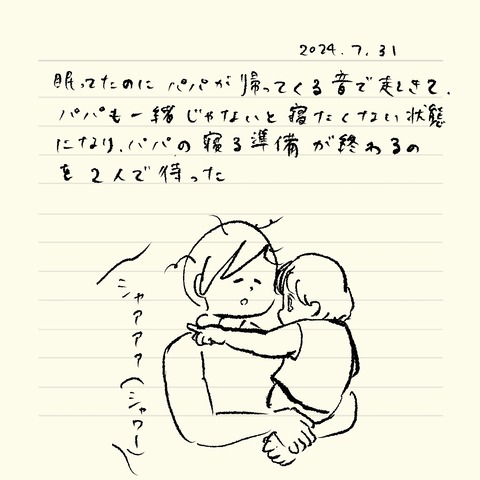 2024.7.31
眠ってたのに パパが 帰ってくる音で起しきて、
パパも一緒じゃないと 寝たくない状態
になり、パパの寝る準備が終わるの
を 2人で待った
シャアアアア(シャワー)